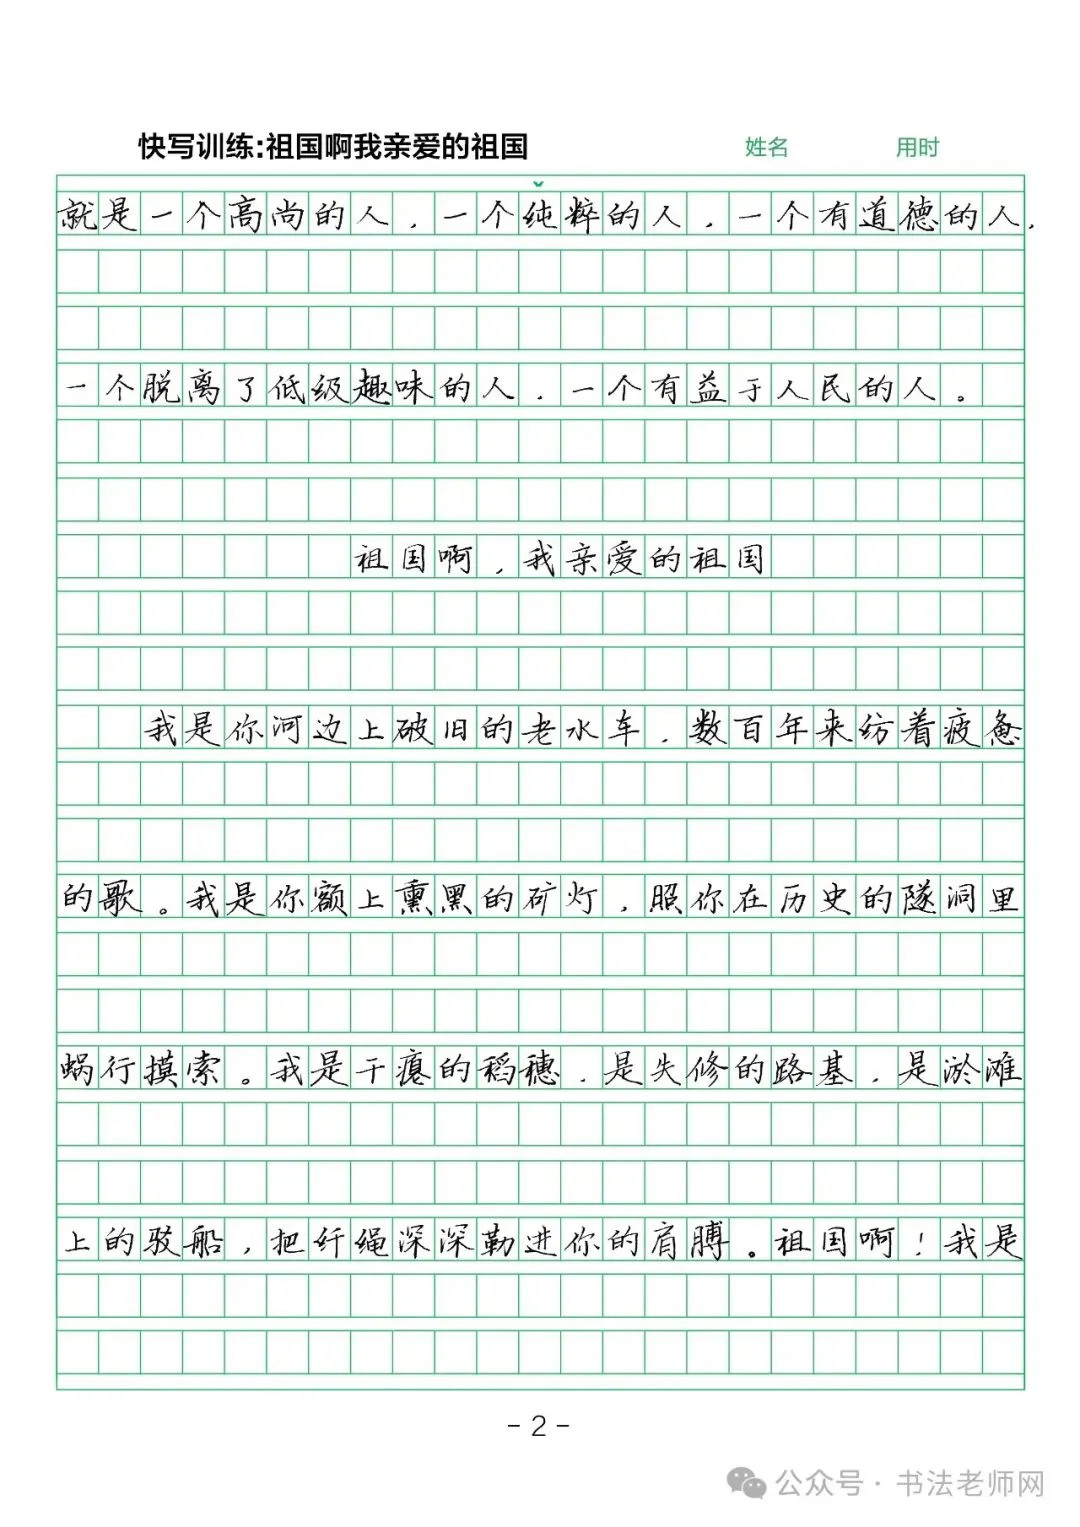 快写训练:祖国啊我亲爱的祖国 姓名 用时
就是一个高尚的人，一个纯粹的人，一个有道德的人，
一个脱离了低级趣味的人，一个有益于人民的人。
祖国啊，我亲爱的祖国
我是你河边上破旧的老水车，数百年来纺着疲惫
的歌。我是你额上熏黑的矿灯，照你在历史的隧洞里
蜗行摸索。我是干瘪的稻穗，是失修的路基，是淤滩
上的驳船，把纤绳深深勒进你的肩膊。祖国啊！我是
- 2 -
公众号 · 书法老师网